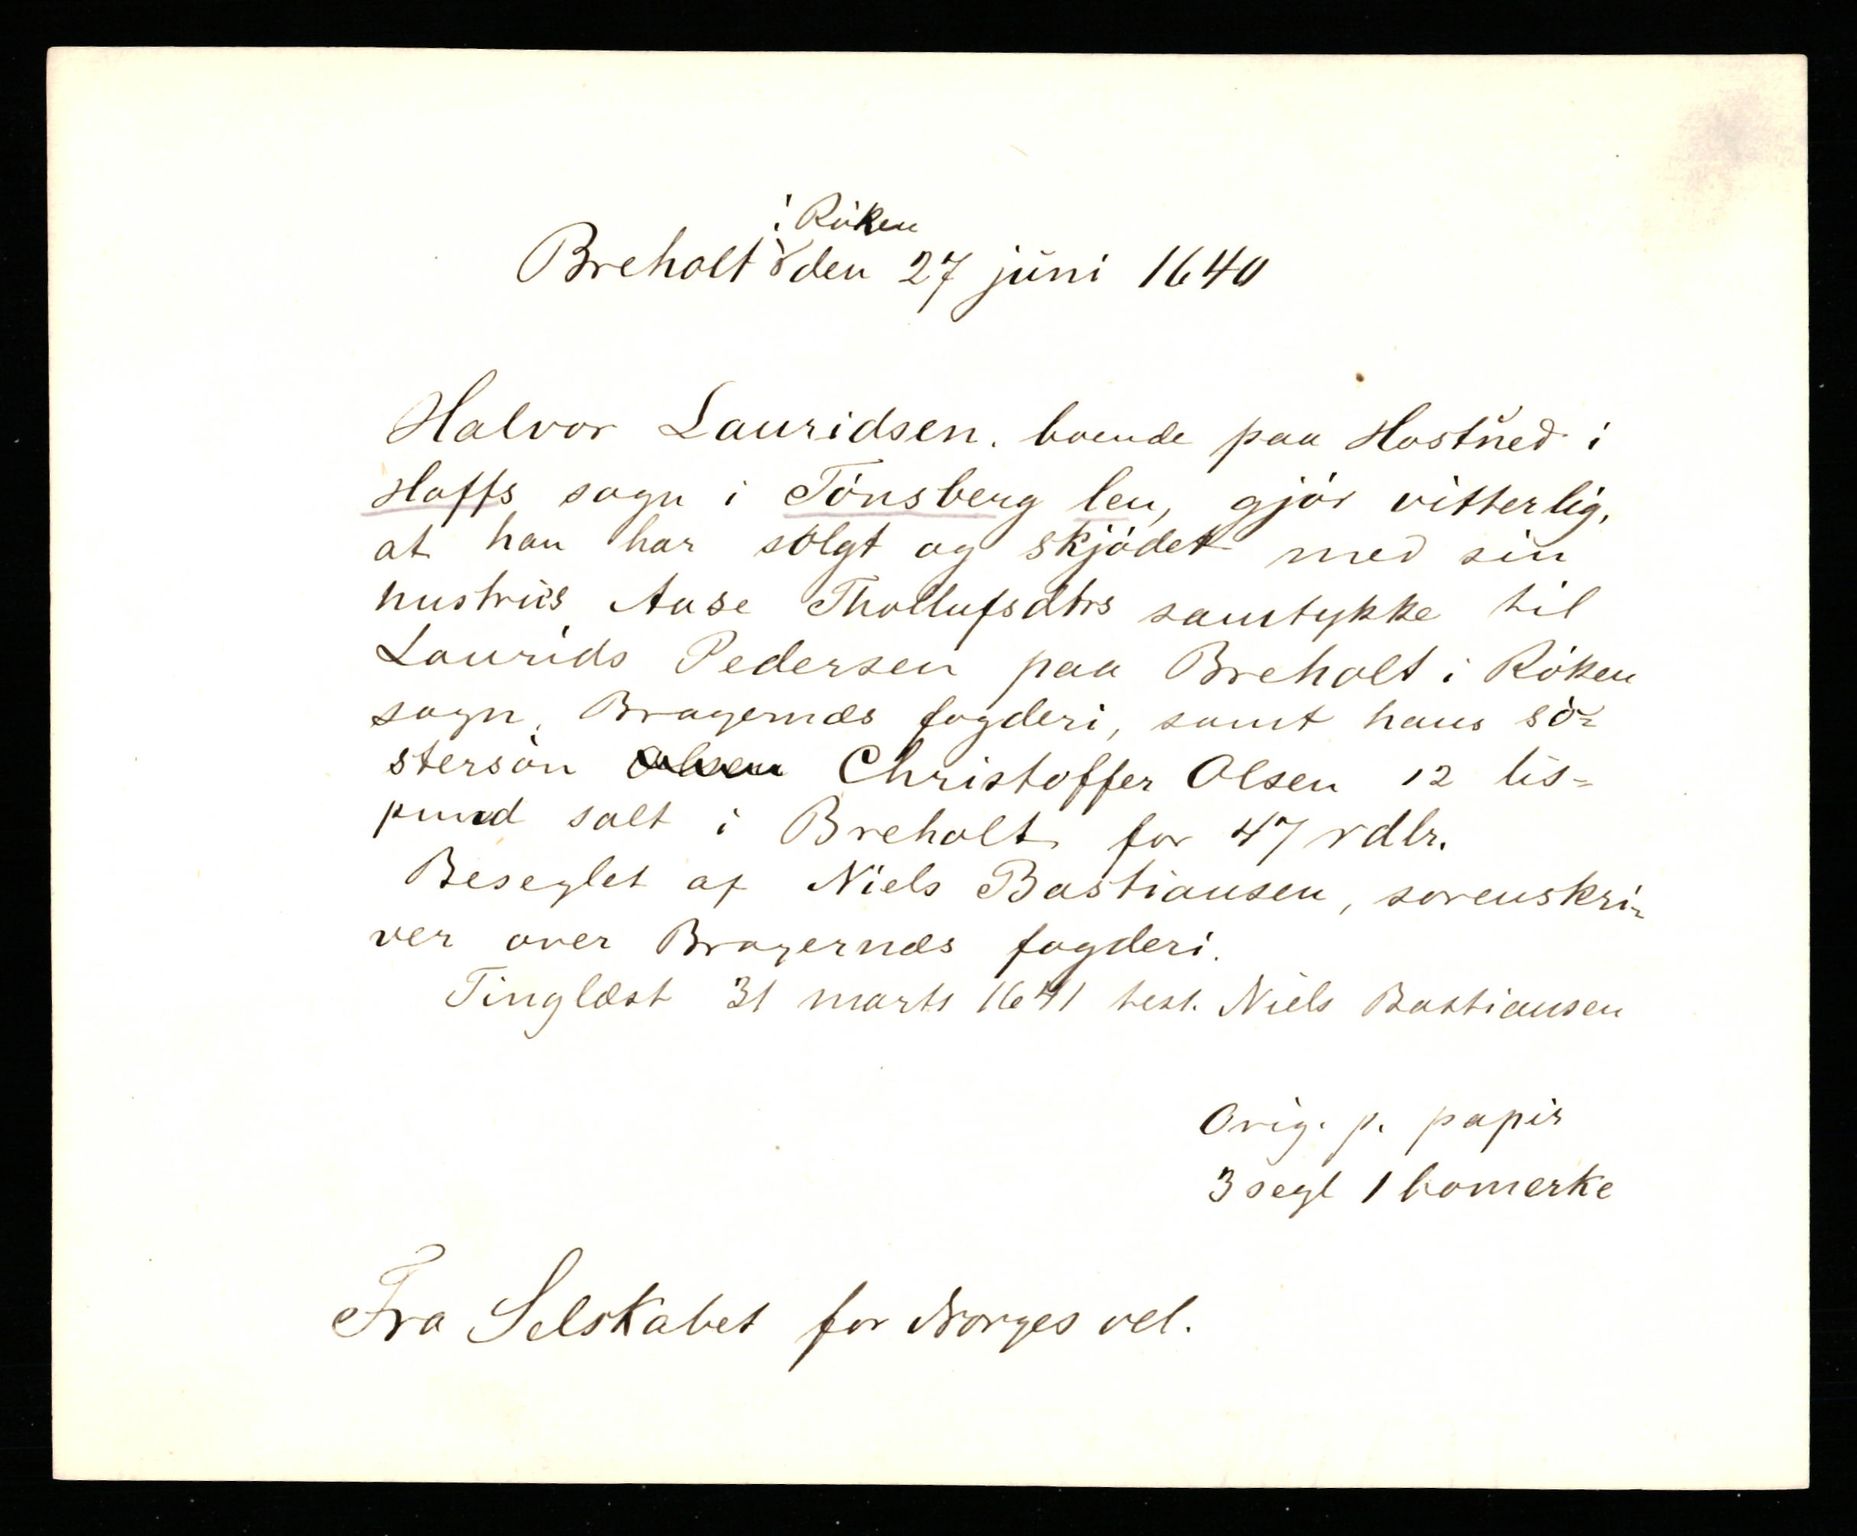 i Röken
Breholt den 27 juni 1640
Halvor Lauridsen, boende paa Hostved i
Hoffs sogn i Tönsberg len, gjör vitterlig,
at han har solgt og skjödet med sin
hustrus Aase Thollufsdtrs samtykke til
Laurids Pedersen paa Breholt i Röken
sogn, Bragernæs fogderi, samt hans sö-
stersön Christoffer Olsen 12 lis-
pund salt i Breholt for 47 rdlr.
Beseglet af Niels Bastiansen, sorenskri-
ver over Bragernæs fogderi.
Tinglæst 31 marts 1641 test. Niels Bastiansen
Orig. p. papir
3 segl 1 bomerke
Fra Selskabet for Norges vel.